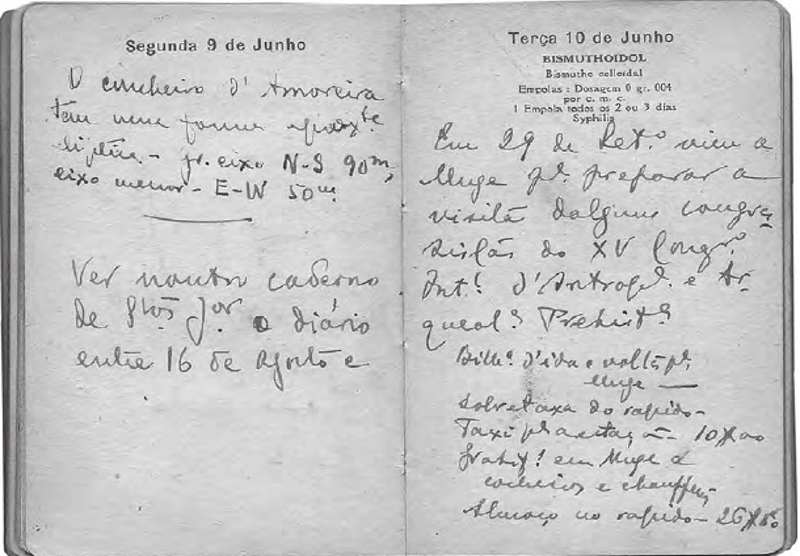 Segunda 9 de Junho
O concheiro d'Amoreira
tem uma forma aprox.te
elíptica - gr. eixo N-S 90m,
eixo menor - E-W 50m
Ver noutro caderno
de 8tos Jor. o diário
entre 16 de Agosto e
Terça 10 de Junho
BISMUTHOIDOL
Bismutho colloidal
Empolas : Dosagem 0 gr. 004
por c. m. c.
1 Empola todos os 2 ou 3 dias
Syphilis
Em 29 de Set.o vim a
Muge p.a preparar a
visita dalguns congres-
sistas do XV Congr.o
Int.l d'Antrop.a e Ar-
queol.a Prehist.a
Bilh.e d'ida e volta p.a
Muge —
Sobretaxa do rapido -
Taxi p.a estação - 10$00
Gratif. em Muge a
cocheiros e chauffeur
Almoço no rapido - 26$